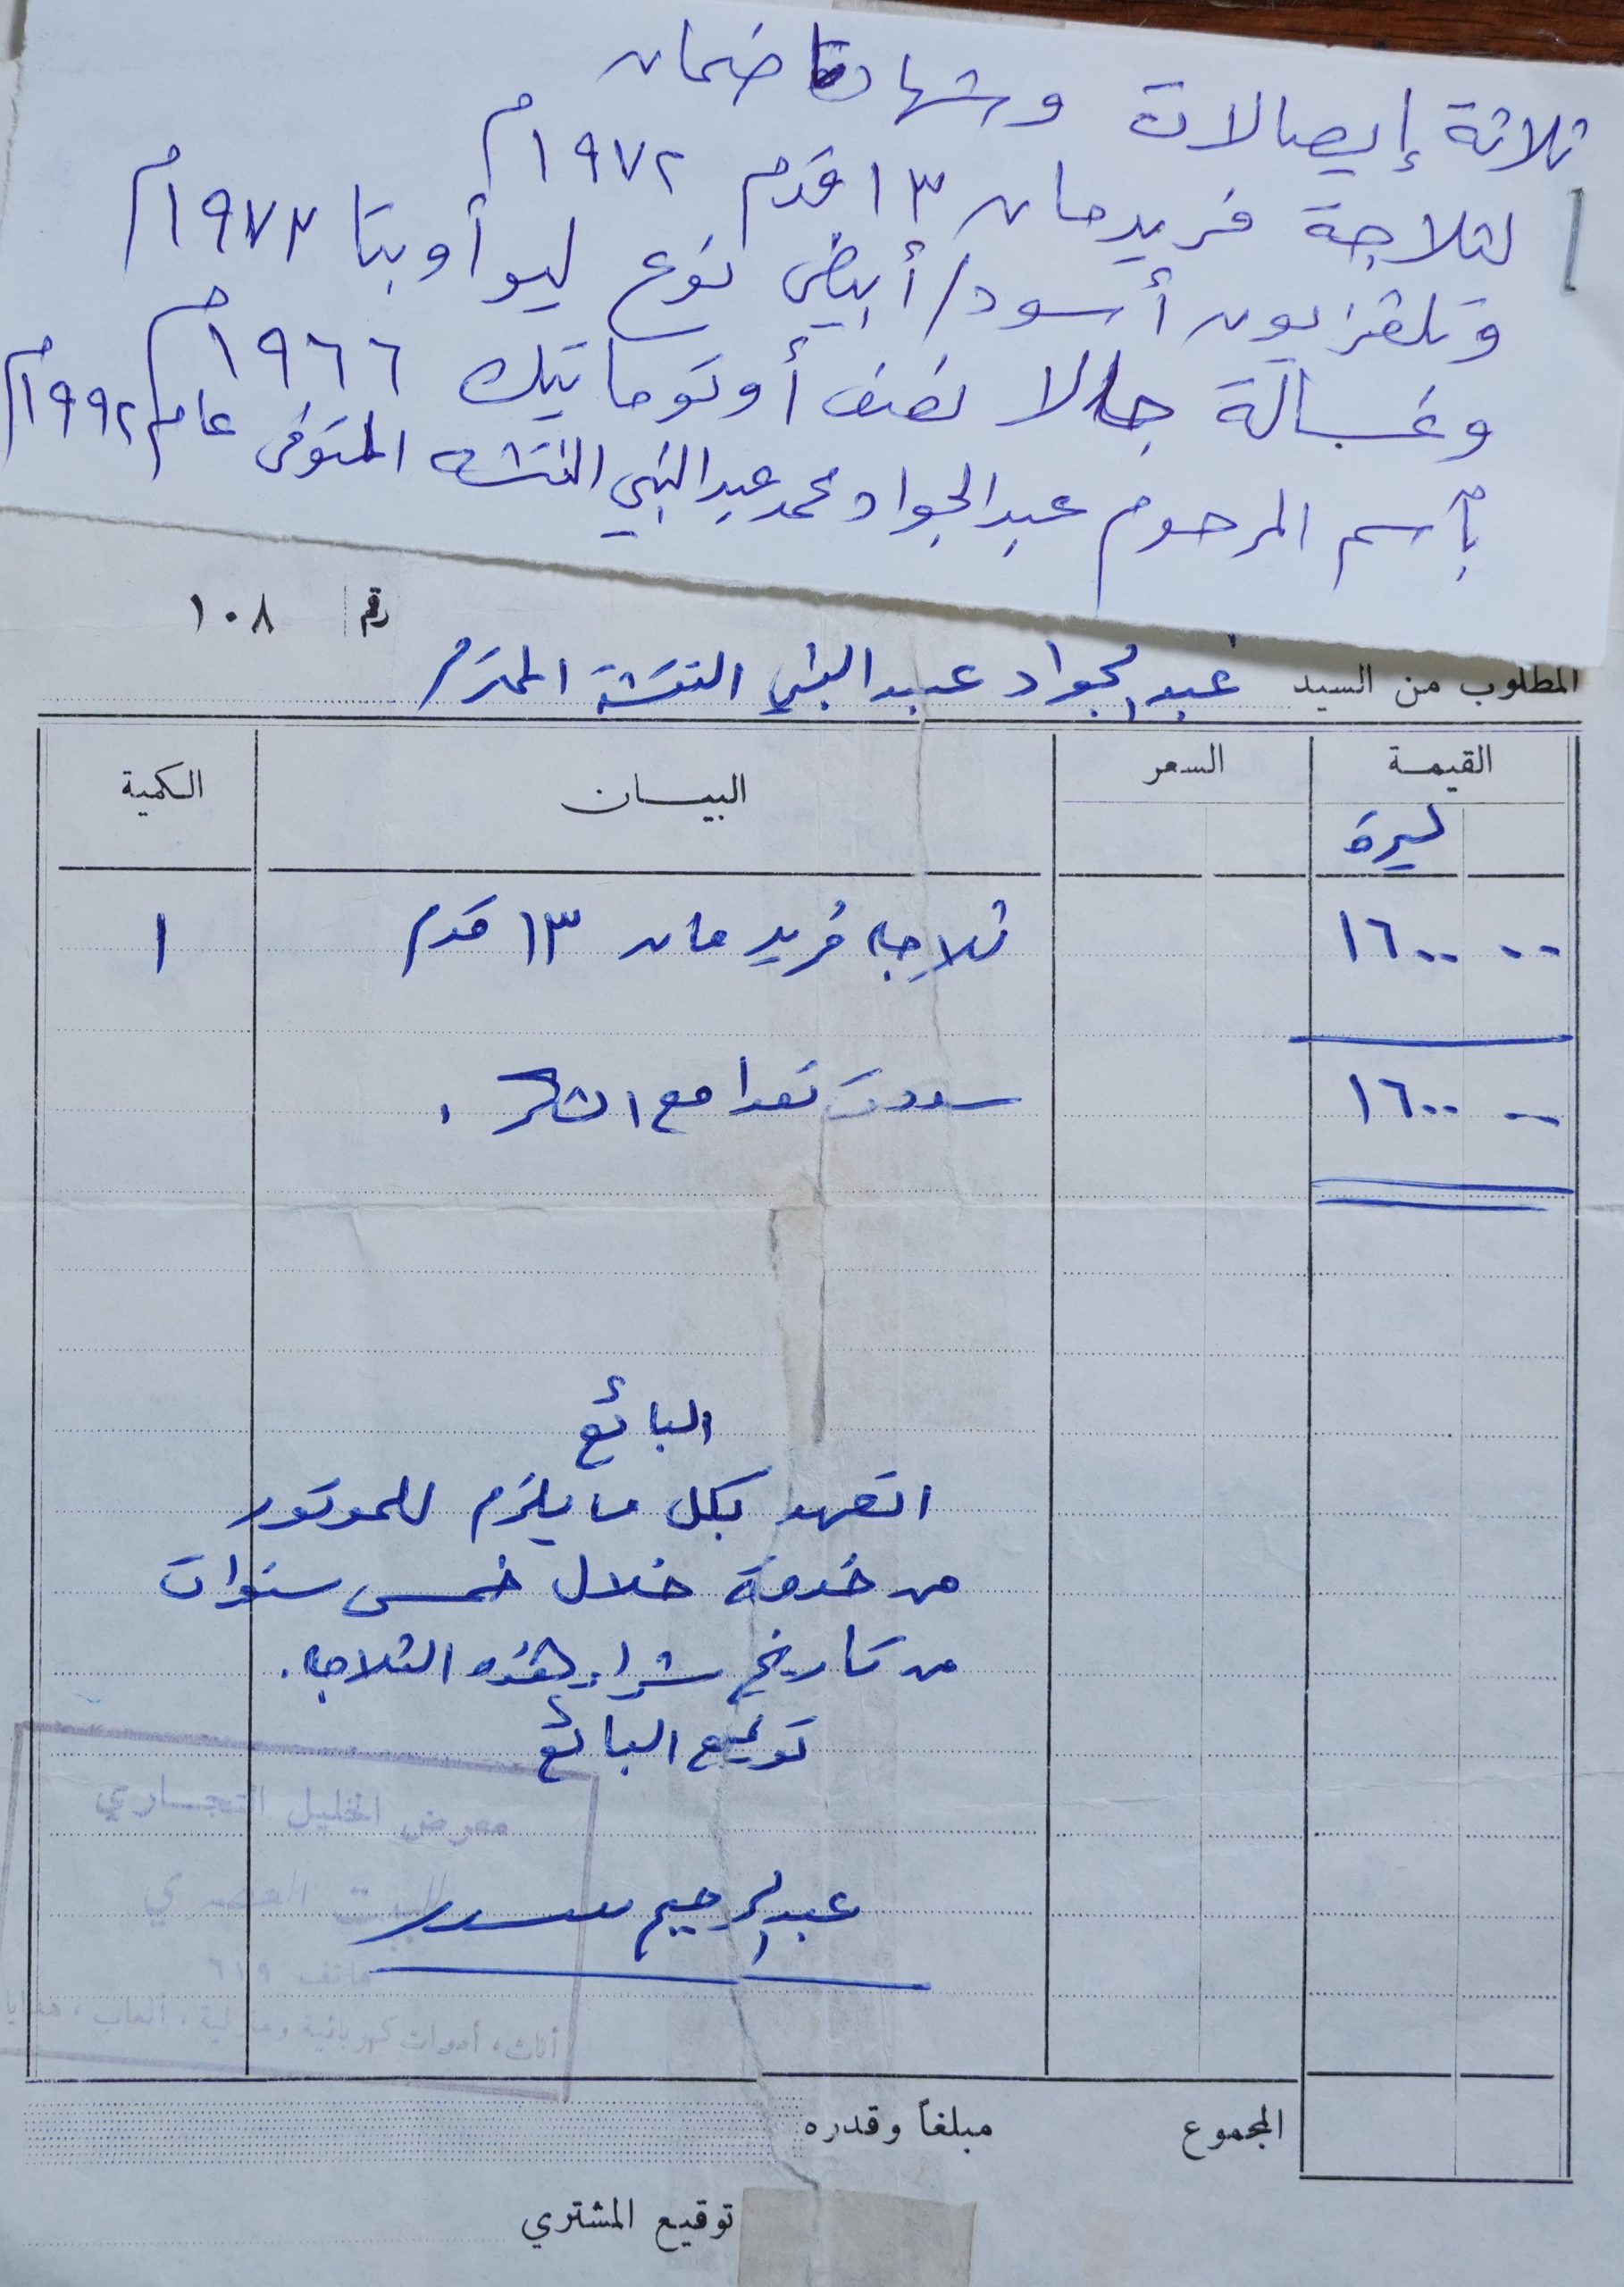 ثلاثة إيصالات وشهادتا ضمان
لثلاجة فريدمان ١٣ قدم ١٩٧٢م
وتلفزيون أسود/أبيض نوع ليوأوبتا ١٩٧٣م
وغسالة جالا نصف أوتوماتيك ١٩٦٦م
بأسم المرحوم عبدالجواد محمد عبدالنبي النتشه المتوفى عام ١٩٩٢م
رقم ١٠٨
المطلوب من السيد عبد الجواد عبد النبي النتشة المحترم
القيمة السعر البيان الكمية
ليرة
١٦٠٠ ٠٠ ثلاجه فريدمان ١٣ قدم ١
١٦٠٠ — سددت نقدا مع الشكر .
البائع
اتعهد بكل ما يلزم للموتور
من خدمة خلال خمس سنوات
من تاريخ شراء هذه الثلاجه .
توقيع البائع
معرض الخليل التجاري
للبيت العصري
عبد الرحيم
هاتف ٦١٩
أثاث ، أدوات كهربائية ومنزلية ، العاب ، هدايا
المجموع مبلغاً وقدره
توقيع المشتري